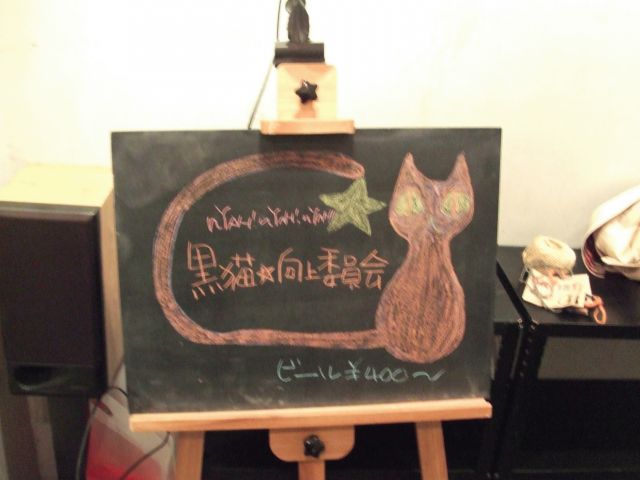 nYAH! nYAH! nYAH!!
黒猫☆向上委員会
ビール¥400〜